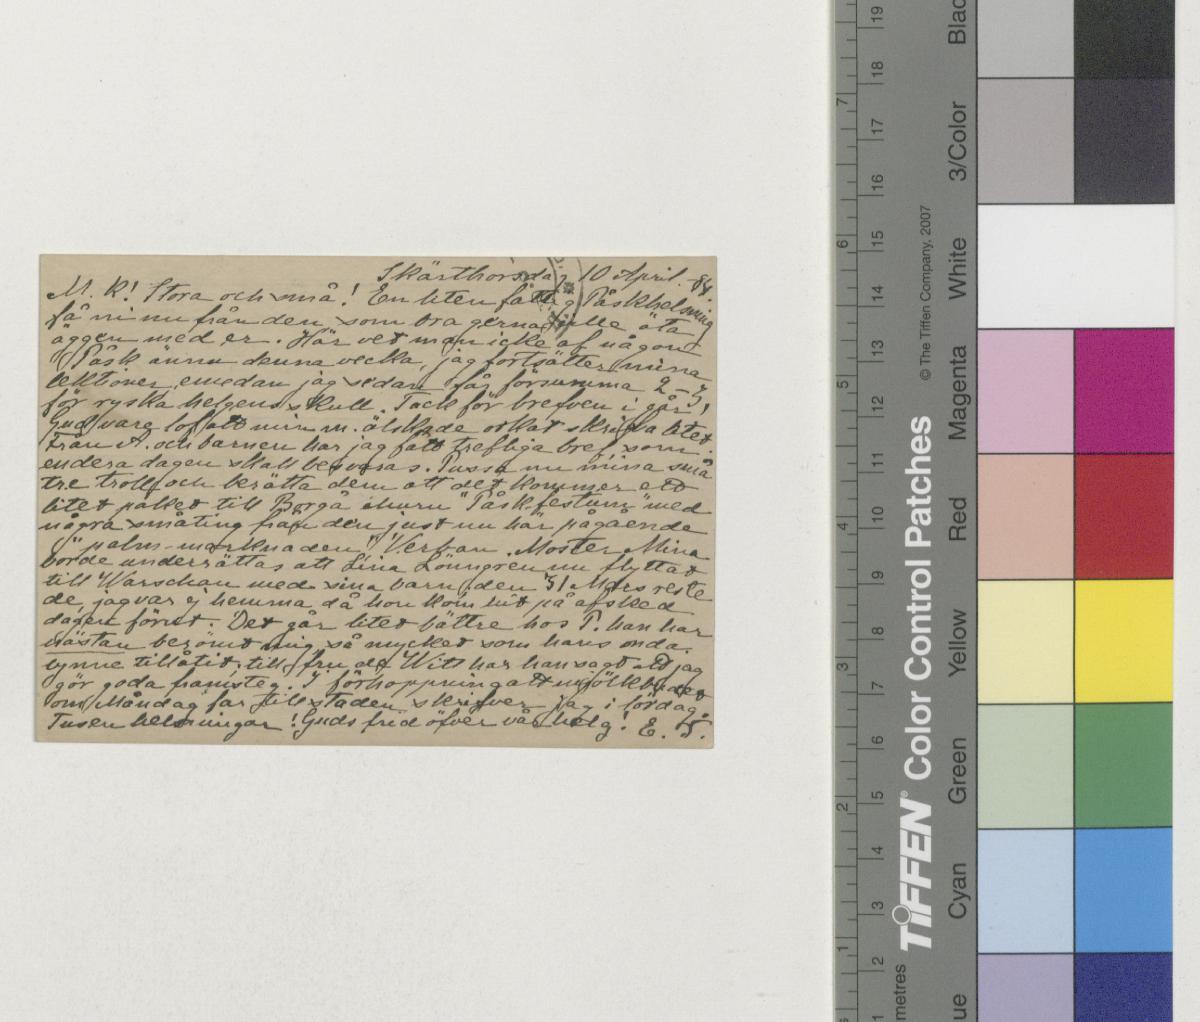 Skärthorsdag 10 April. 84.
M. K! Stora och små! En liten fattig Påskhelsning
få ni nu från den som bra gerna ville äta
äggen med er. Här vet man icke af någon
Påsk ännu denna vecka, jag fortsätter mina
lektioner, emedan jag sedan får försumma 2–3,
för ryska helgens skull. Tack för brefven i går,
Gud vare lof att min m. älskade orkat skrifva litet.
Från A. och barnen har jag fått trefliga bref som
endera dagen skall besvaras. Pussa nu mina små
tre troll och berätta dem att det kommer ett
litet paket till Borgå "Påsk-festum" med
några småting från den just nu här pågående
"palm-marknaden" "Verban. Moster Mina
borde underrättas att Lina Lönngren nu flyttat
till Warschau med sina barn, den 31 Mars reste
de, jag var ej hemma då hon kom hit på afsked
dagen förut. Det går litet bättre hos P. han har
nästan berömt mig, så mycket som hans onda
lynne tillåtit, till fru de Witt har han sagt att jag
gör goda framsteg. I förhoppning att
om Måndag far till staden skrifver jag i lördag.
Tusen helsningar! Guds frid öfver vår helg! E. S.
TIFFEN® Color Control Patches
© The Tiffen Company, 2007
metres
1 2 3 4 5 6 7 8 9 10 11 12 13 14 15 16 17 18 19
1 2 3 4 5 6 7
Cyan Green Yellow Red Magenta White 3/Color